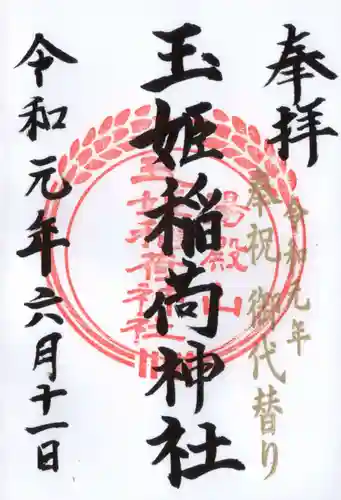 奉拝
奉祝 御代替り
令和元年
玉姫稲荷神社
湯殿山
玉姫稲荷神社
令和元年六月十一日